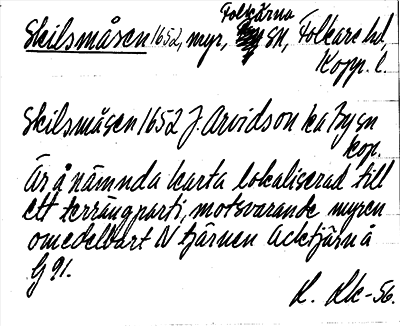 Skilsmåsen 1652, myr, Folkärna sn, Folkare hd,
Kopp. l.
Skilsmåsen 1652 J. Arvidson ka By sn
kop.
Är å nämnda karta lokaliserad till
ett terrängparti, motsvarande myren
omedelbart N tjärnen Acktjärn å
G 91.
R. Lk-56.